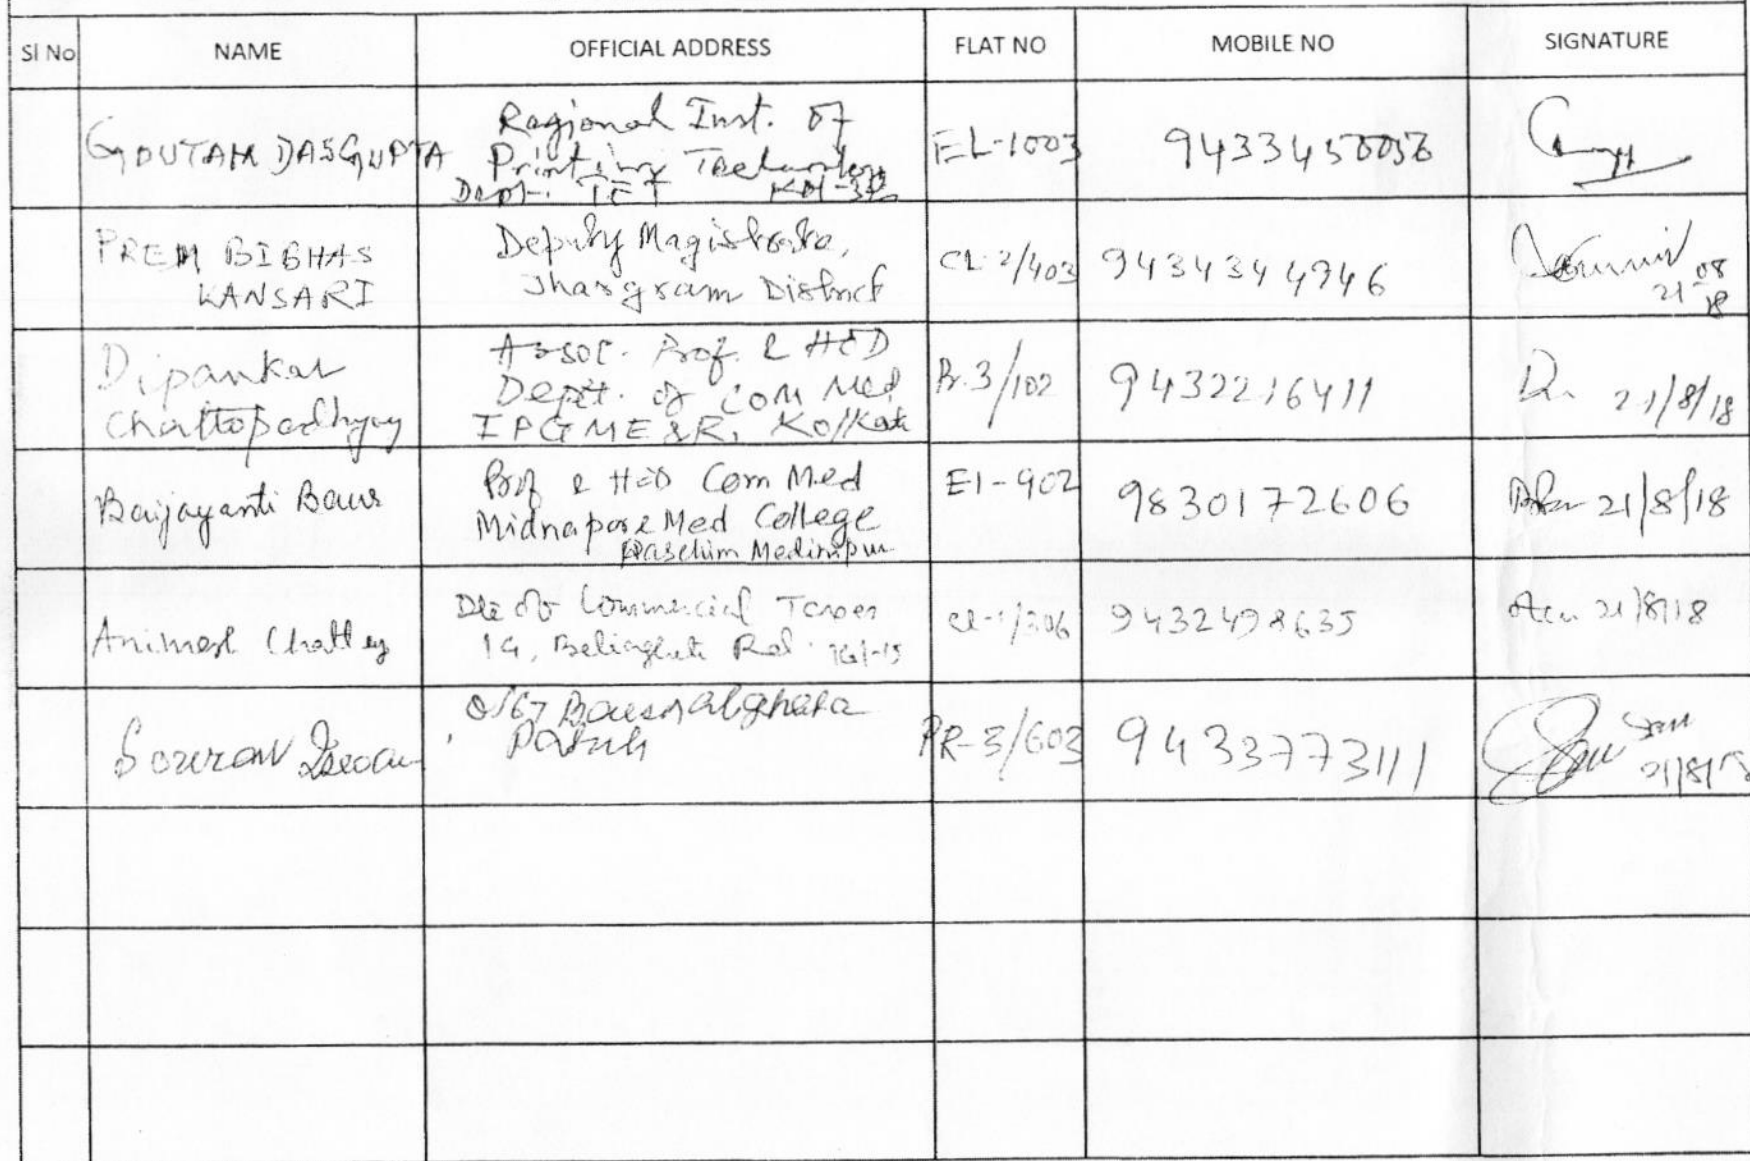 Sl No NAME OFFICIAL ADDRESS FLAT NO MOBILE NO SIGNATURE
GOUTAM DASGUPTA
Regional Inst. of
Printing
Deptt. TET Kol-32
EL-1003
PREM BIBHAS
KANSARI
Deputy Magistrate,
Jhargram District
CL-2/403
9434344946
08
21
18
Dipankar
Chattopadhyay
Assoc. Prof. & HOD
Deptt. of COM Med
IPGME&R, Kolkata
Pr.3/102
9432216411
21/8/18
Baijayanti Baur
Prof & HOD Com Med
Midnapore Med College
Paschim Medinipur
E1-902
9830172606
21/8/18
Animesh Chatt
of Commercial Taxes
14, Beliaghata Rd. Kol-15
CL-1/306
9432498635
21/8/18
Sourav
0/67 Baisnabghata
Patuli
PR-3/603
9433773111
21/8/18